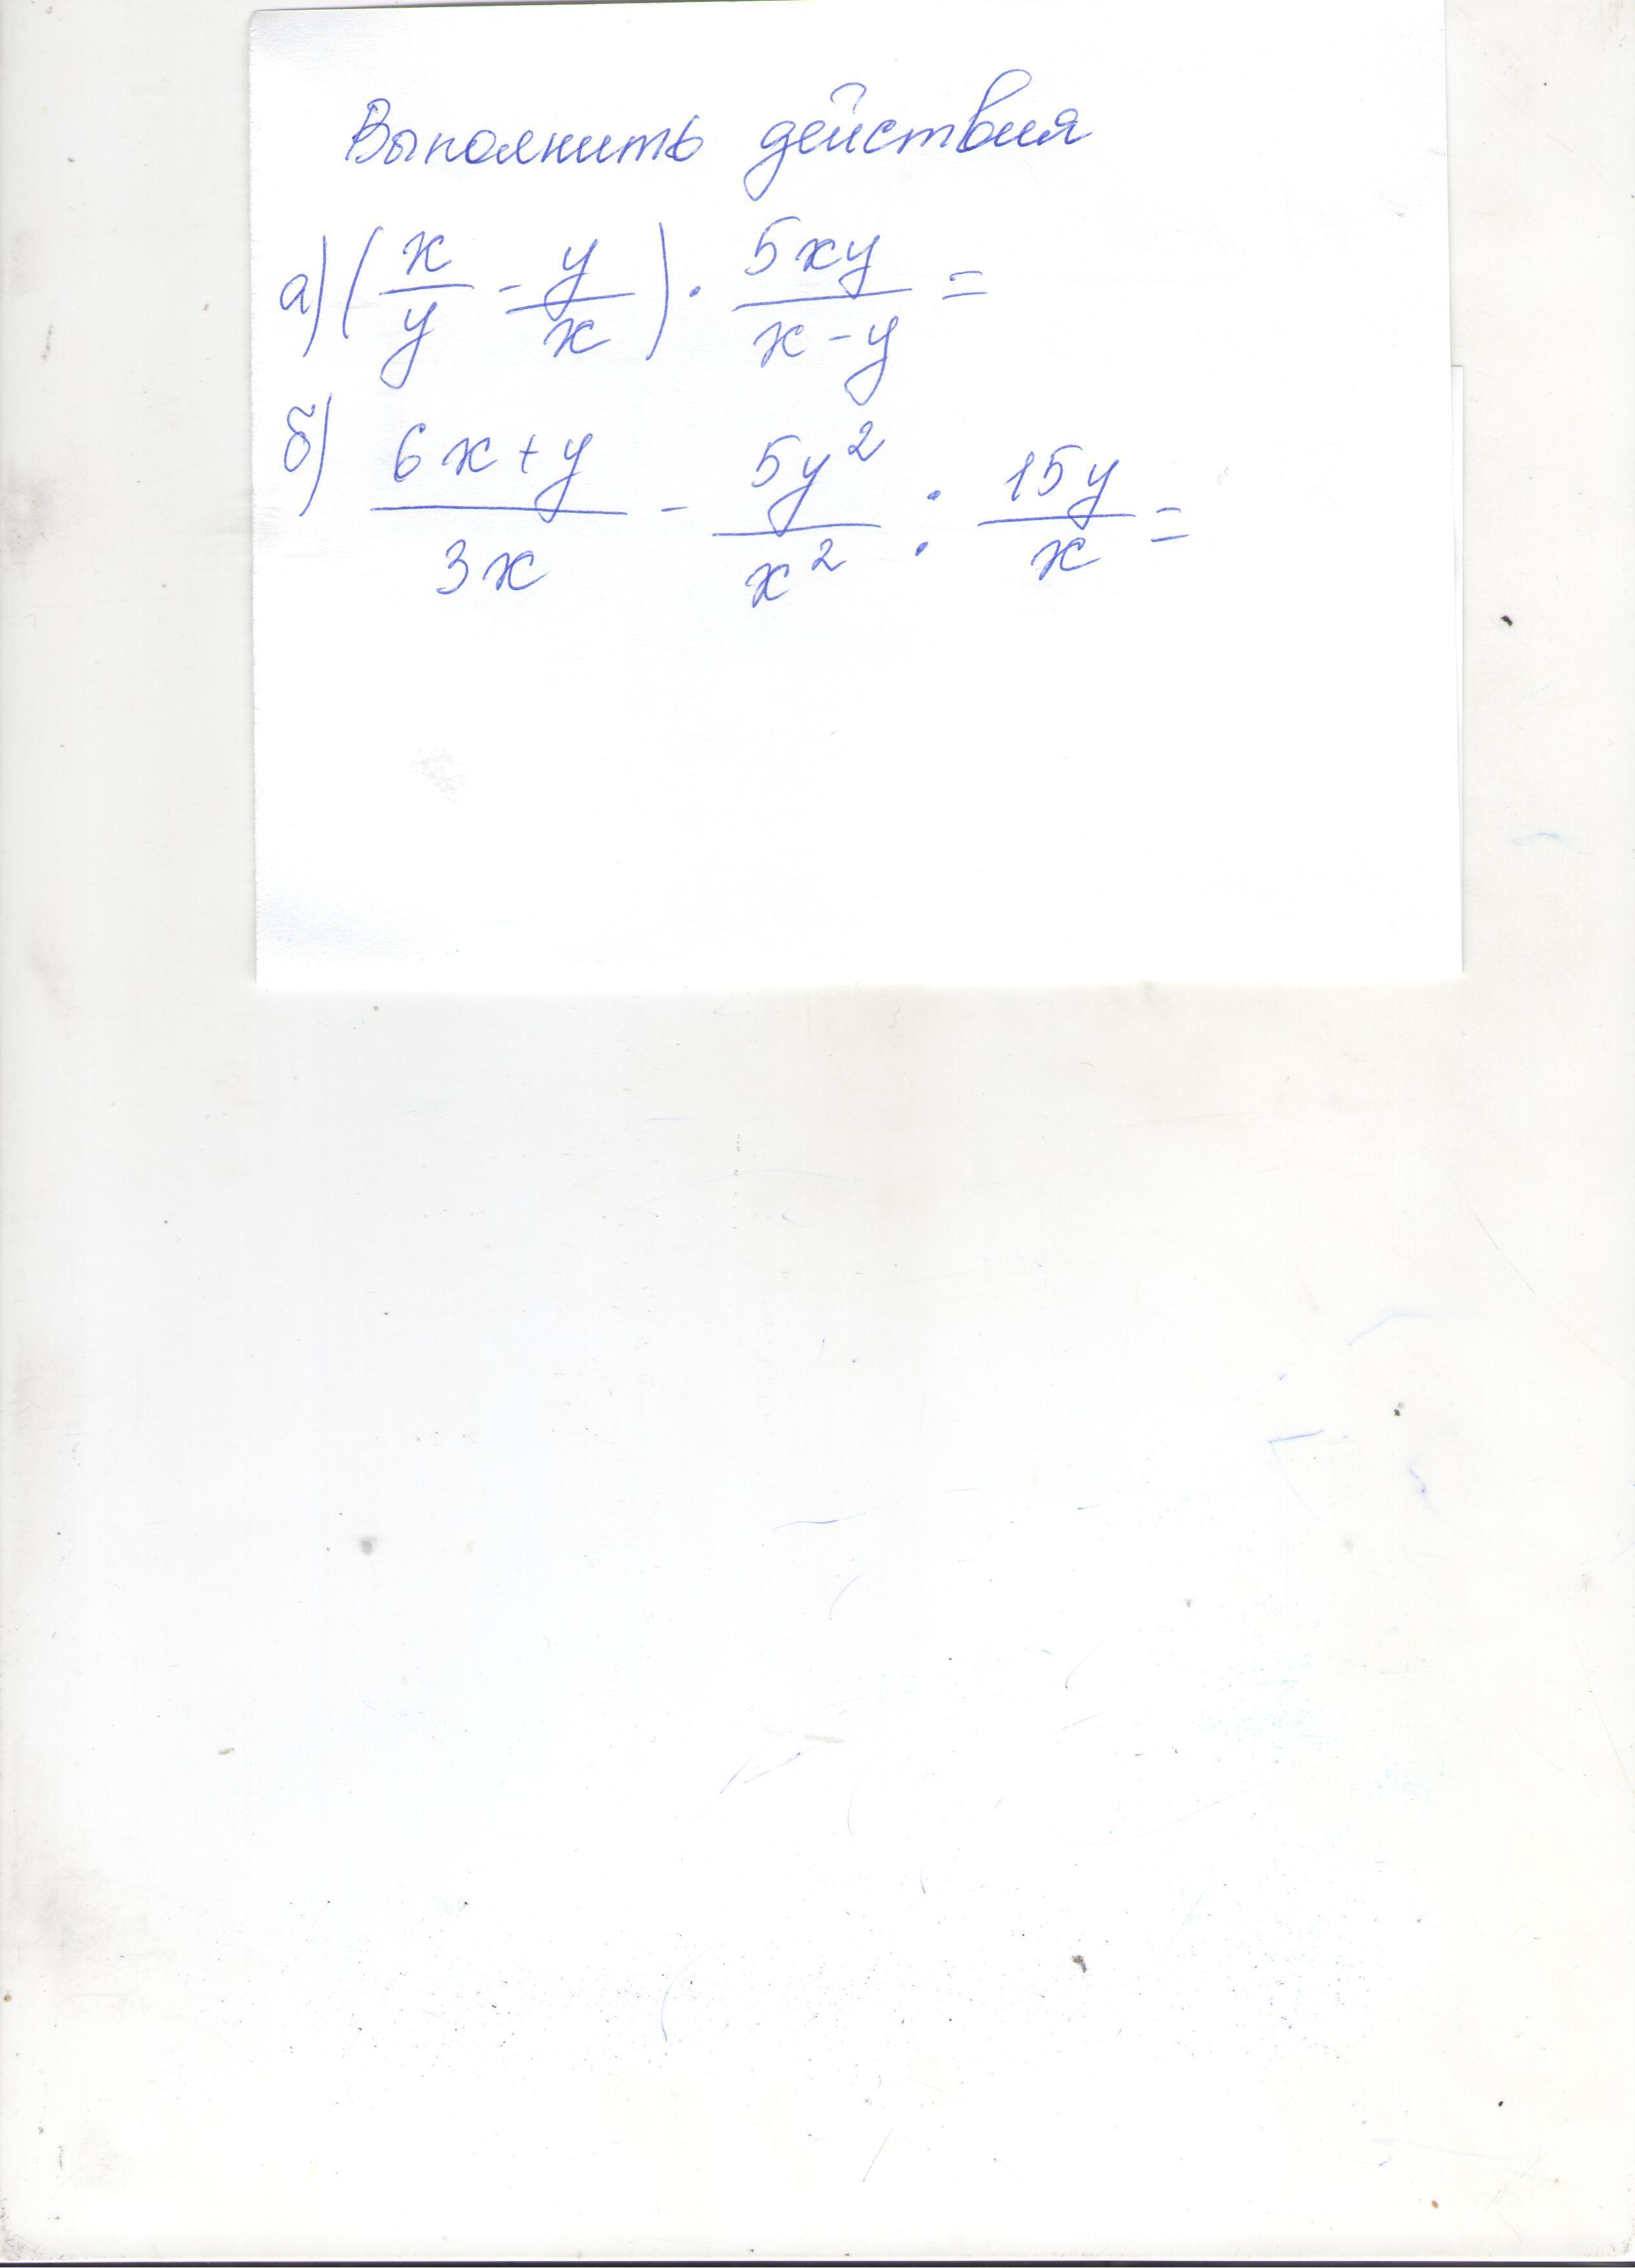 Выполнить действия
а) (x/y - y/x) · 5xy/(x-y) =
б) (6x+y)/(3x) - 5y²/x² : 15y/x =